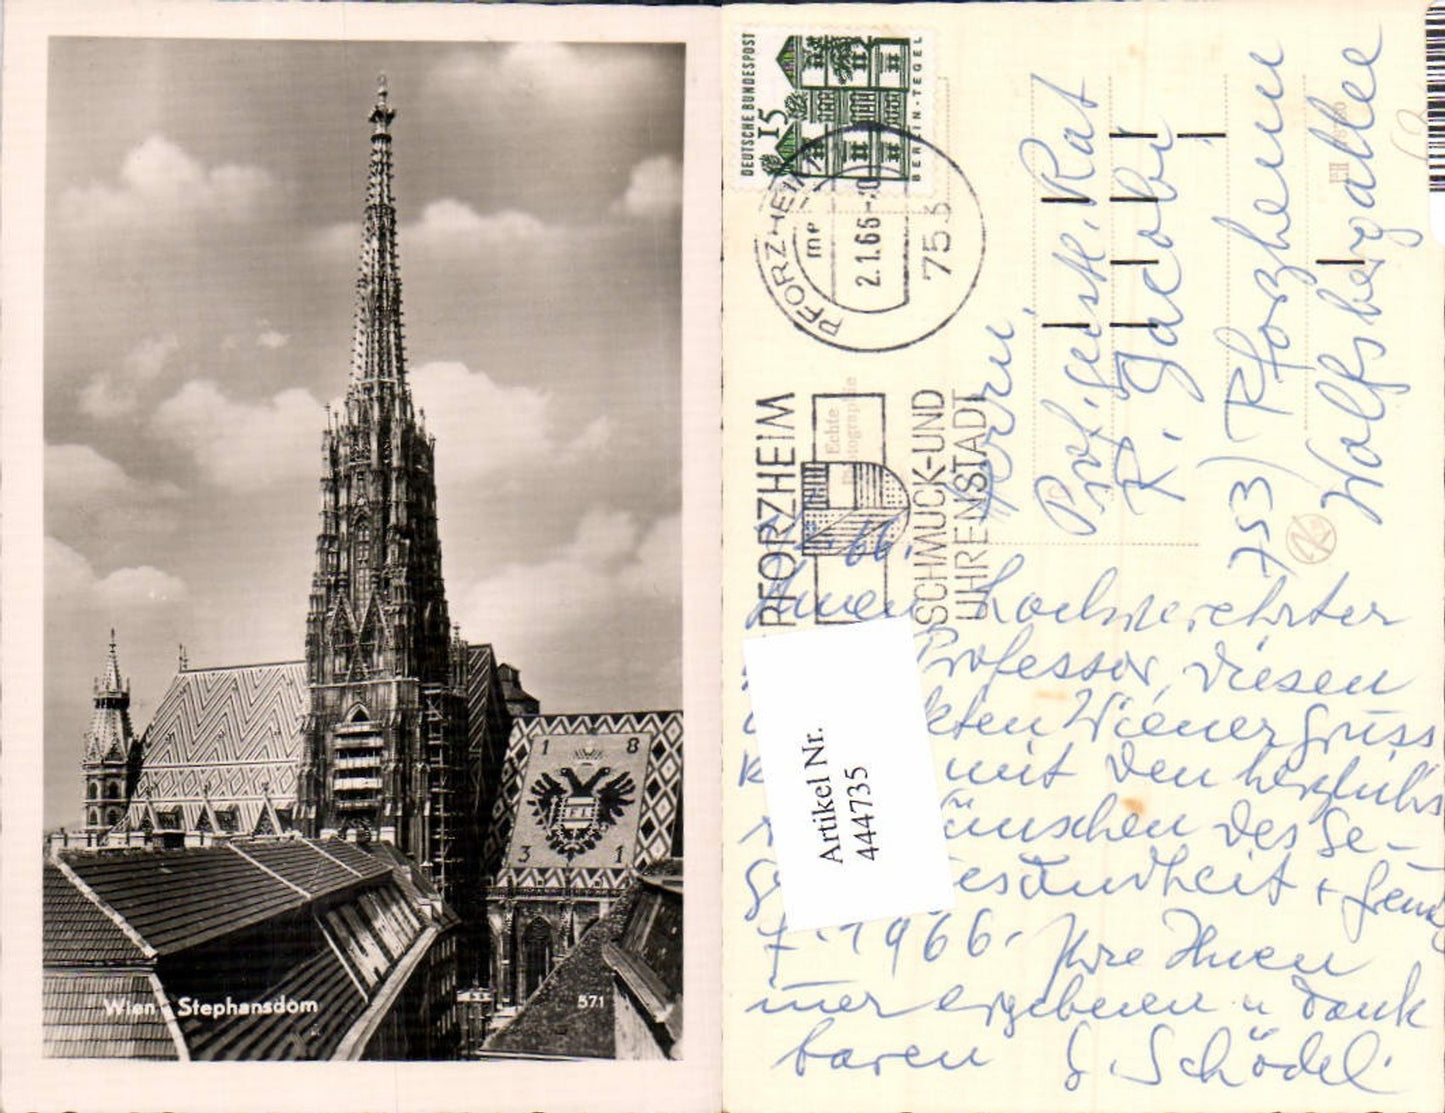 1 8
3 1
Wien Stephansdom
571
DEUTSCHE BUNDESPOST
15
BERLIN-TEGEL
PFORZHEIM
me
2.1.66-20
753
PFORZHEIM
SCHMUCK-UND
UHRENSTADT
Echte
Photographie
Herrn
Prof. geistl. Rat
R. Jacobi
753) Pforzheim
Wolfsbergallee
66.
Ihnen hochverehrter
Professor, diesen
Wiener Gruss
mit den herzlichs
ünschen des Ge-
esundheit +
f. 1966. Ihre Ihnen
imer ergebenen u dank
baren G. Schödel.
Artikel Nr.
444735